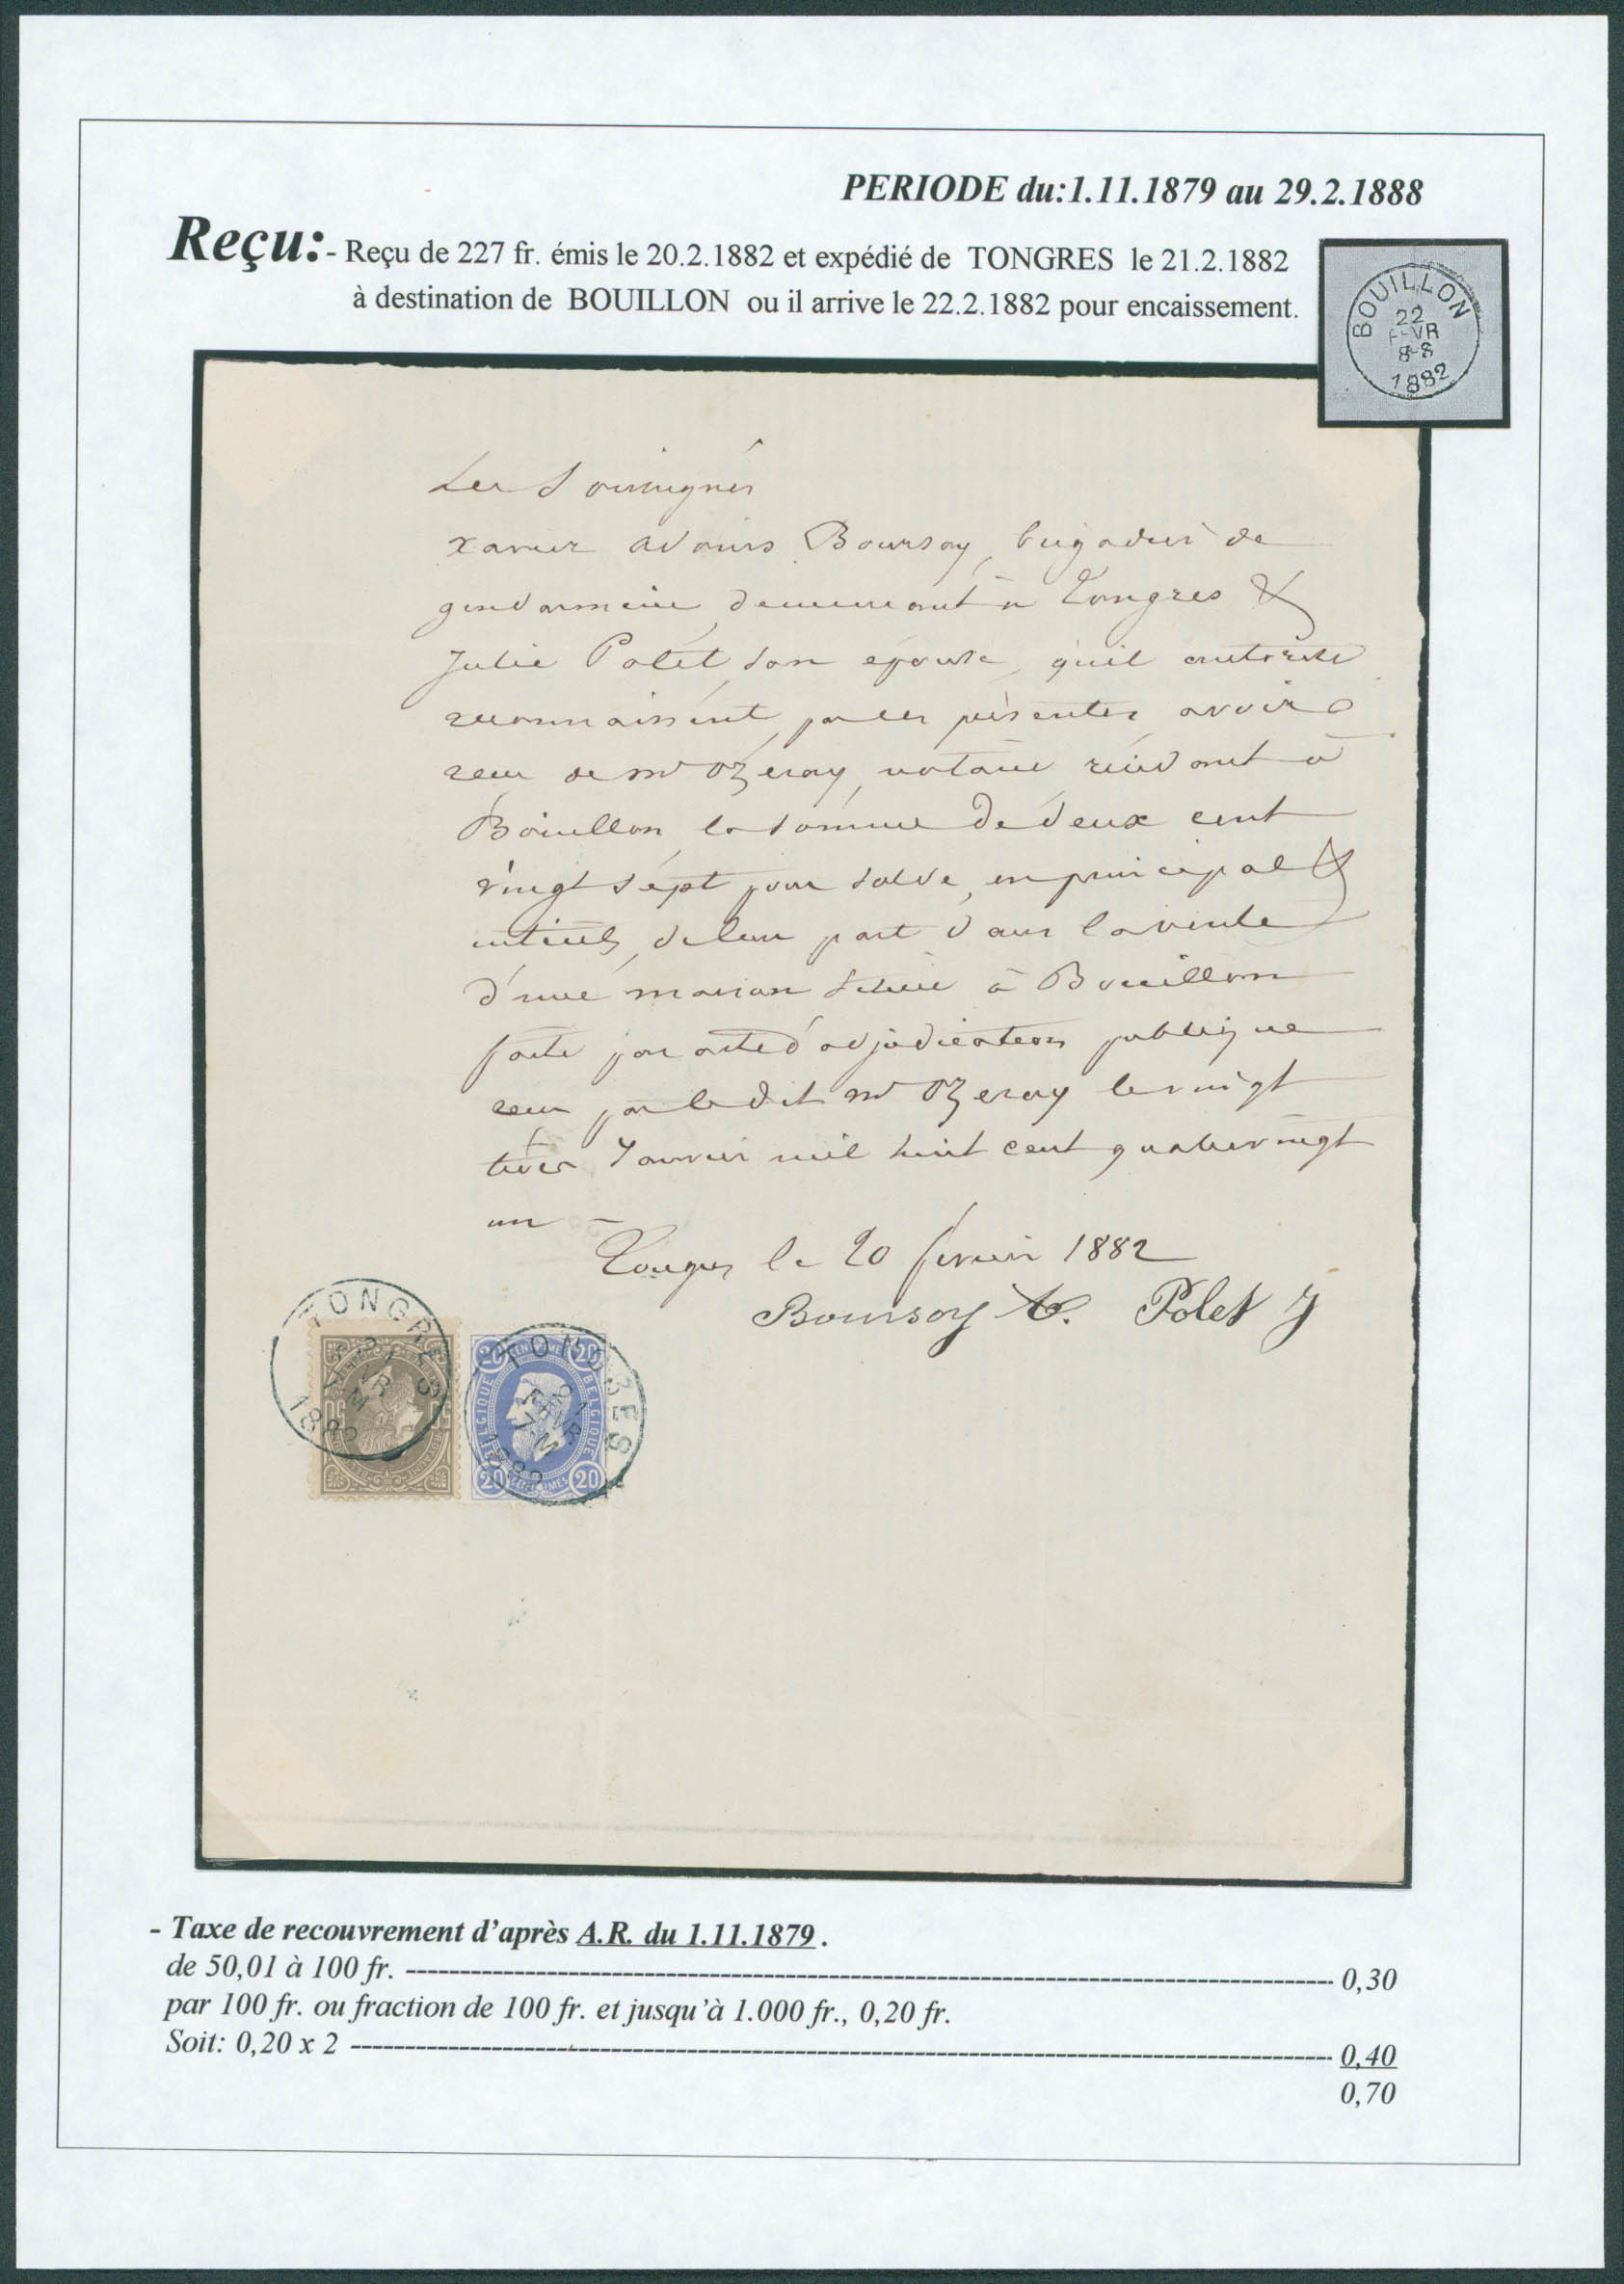 PERIODE du:1.11.1879 au 29.2.1888
Reçu:- Reçu de 227 fr. émis le 20.2.1882 et expédié de TONGRES le 21.2.1882
à destination de BOUILLON ou il arrive le 22.2.1882 pour encaissement.
BOUILLON
22
FEVR
8-S
1882
Les Soussignés
Xavier Boursoy, brigadier de
gendarmerie, demeurant à Tongres &
Julie Polet, son épouse, qu'il autorise
reconnaissent, par les présentes avoir
recu de Mr Ozeray, notaire résidant à
Bouillon, la somme de deux cent
vingt sept pour solde, en principal &
intérêts, de leur part dans la vente
d'une maison située à Bouillon
faite par acte d'adjudication publique
recu par le dit Mr Ozeray le vingt
trois Janvier mil huit cent quatre vingt
un -
Tongres le 20 février 1882
Boursoy X. Polet J
TONGRES
21
FEVR
7-M
1882
TONGRES
21
FEVR
7-M
1882
20 CENTIMES 20
BELGIQUE
BELGIQUE
20 CENTIMES 20
- Taxe de recouvrement d'après A.R. du 1.11.1879.
de 50,01 à 100 fr. ---------- 0,30
par 100 fr. ou fraction de 100 fr. et jusqu'à 1.000 fr., 0,20 fr.
Soit: 0,20 x 2 ---------- 0,40
0,70